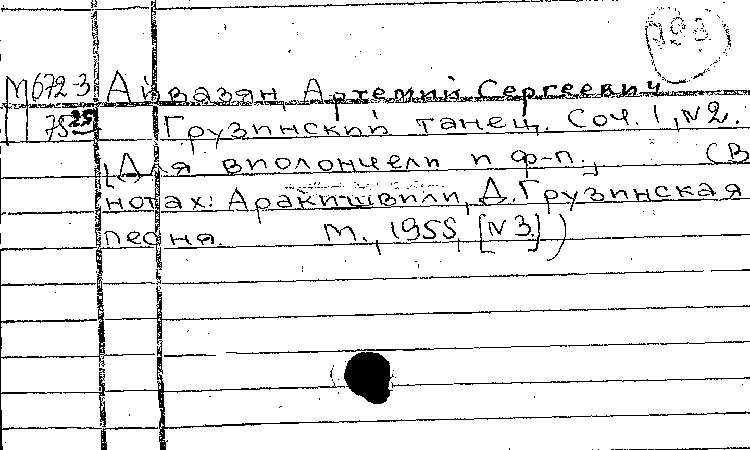 М672-3 Айвазян, Артемий Сергеевич
7525 Грузинский танец. Соч. 1, N2.
[Для виолончели и ф-п.] (В
нотах: Аракишвили, Д. Грузинская
песня. М., 1955, [N 3.])